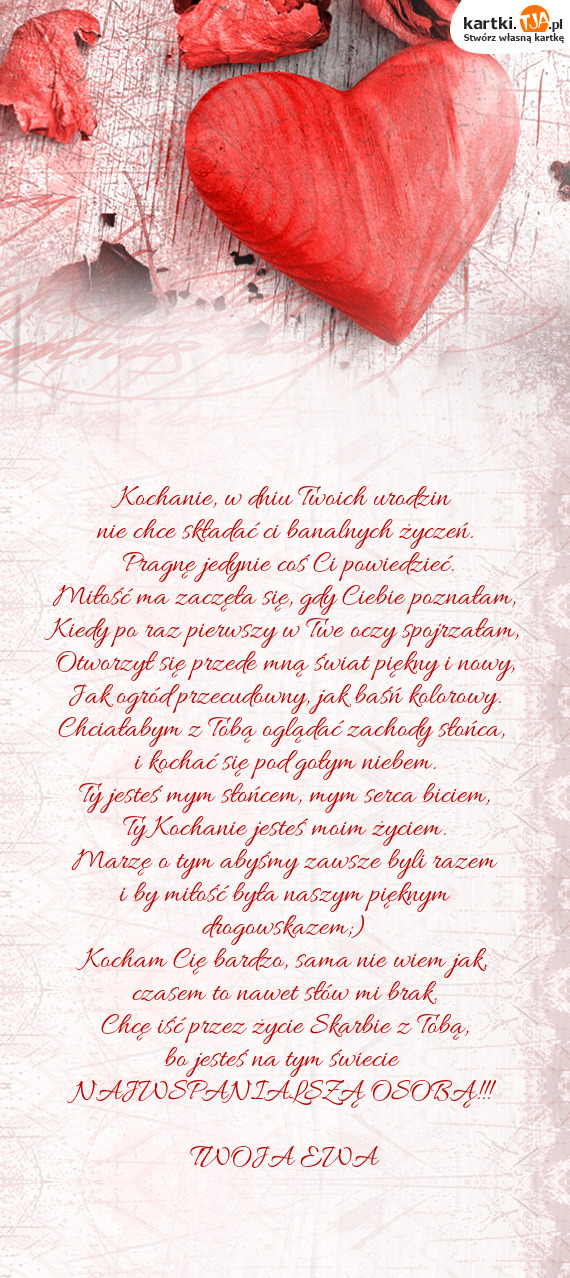 kartki.TJA.pl
Stwórz własną kartkę
Kochanie, w dniu Twoich urodzin
nie chce składać ci banalnych życzeń.
Pragnę jedynie coś Ci powiedzieć.
Miłość ma zaczęła się, gdy Ciebie poznałam,
Kiedy po raz pierwszy w Twe oczy spojrzałam,
Otworzył się przede mną świat piękny i nowy,
Jak ogród przecudowny, jak baśń kolorowy.
Chciałabym z Tobą oglądać zachody słońca,
i kochać się pod gołym niebem.
Ty jesteś mym słońcem, mym serca biciem,
Ty Kochanie jesteś moim życiem.
Marzę o tym abyśmy zawsze byli razem
i by miłość była naszym pięknym
drogowskazem;)
Kocham Cię bardzo, sama nie wiem jak,
czasem to nawet słów mi brak.
Chcę iść przez życie Skarbie z Tobą,
bo jesteś na tym świecie
NAJWSPANIALSZĄ OSOBĄ!!!
TWOJA EWA